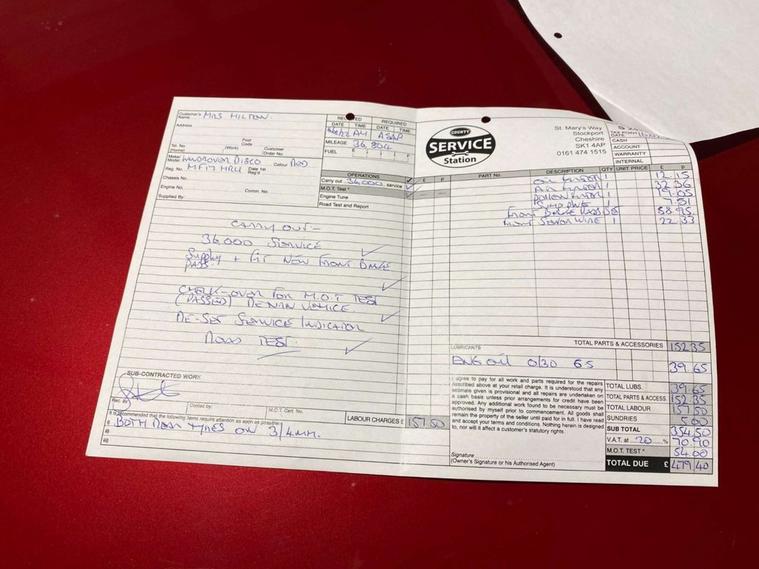 Customer's Name MRS HILTON
Address
Post Code
Tel. No. (Home) (Work) Customer Order No.
Make/Model LANDROVER DISCO Colour RED
Reg. No. Date 1st Reg'd
Chassis No.
Engine No. Comm. No.
Supplied By:
REQUIRED
DATE TIME DATE TIME
ASAP
MILEAGE 36,804
FUEL E F
OPERATIONS £ P
Carry out 36,000 service ✓
M.O.T. Test ✓
Engine Tune
Road Test and Report
CARRY OUT:-
36000 SERVICE ✓
SUPPLY + FIT NEW FRONT BRAKE PADS. ✓
CHECK-OVER FOR M.O.T TEST
(PASSED) RENAN VEHICE. ✓
RE-SET SERVICE INDICATOR
ROAD TEST. ✓
SUB-CONTRACTED WORK
Rec. By
Quoted by M.O.T. Cert. No.
LABOUR CHARGES £ 157.50
It is recommended that the following items require attention as soon as possible:-
BOTH REAR TYRES ON 3/4MM.
COUNTY
SERVICE
Station
St. Mary's Way
Stockport
Cheshire
SK1 4AP
0161 474 1515
CASH
ACCOUNT
WARRANTY
INTERNAL
PART No. DESCRIPTION QTY UNIT PRICE £ P
OIL FILTER 1 12 15
AIR FILTER 1 32 36
POLLEN FILTER 1 19 05
SUMP PLUG 1 7 51
FRONT BRAKE PADS 58 95
FRONT SENSOR WIRE 1 22 33
TOTAL PARTS & ACCESSORIES 152.35
LUBRICANTS
ENG OIL 0/30 6.5 39 65
I agree to pay for all work and parts required for the repairs
described above at your retail charge. It is understood that any
estimate given is provisional and all repairs are undertaken on
a cash basis unless prior arrangements for credit have been
approved. Any additional work found to be necessary must be
authorised by myself prior to commencement. All goods shall
remain the property of the seller until paid for in full. I have read
and accept your terms and conditions. Nothing herein is designed
to, nor will it affect a customer's statutory rights.
Signature
(Owner's Signature or his Authorised Agent)
TOTAL LUBS. 39 65
TOTAL PARTS & ACCESS 152 35
TOTAL LABOUR 157 50
SUNDRIES 5 00
SUB TOTAL 354.50
V.A.T. at 20 % 70.90
M.O.T. TEST 54.00
TOTAL DUE £ 479 40